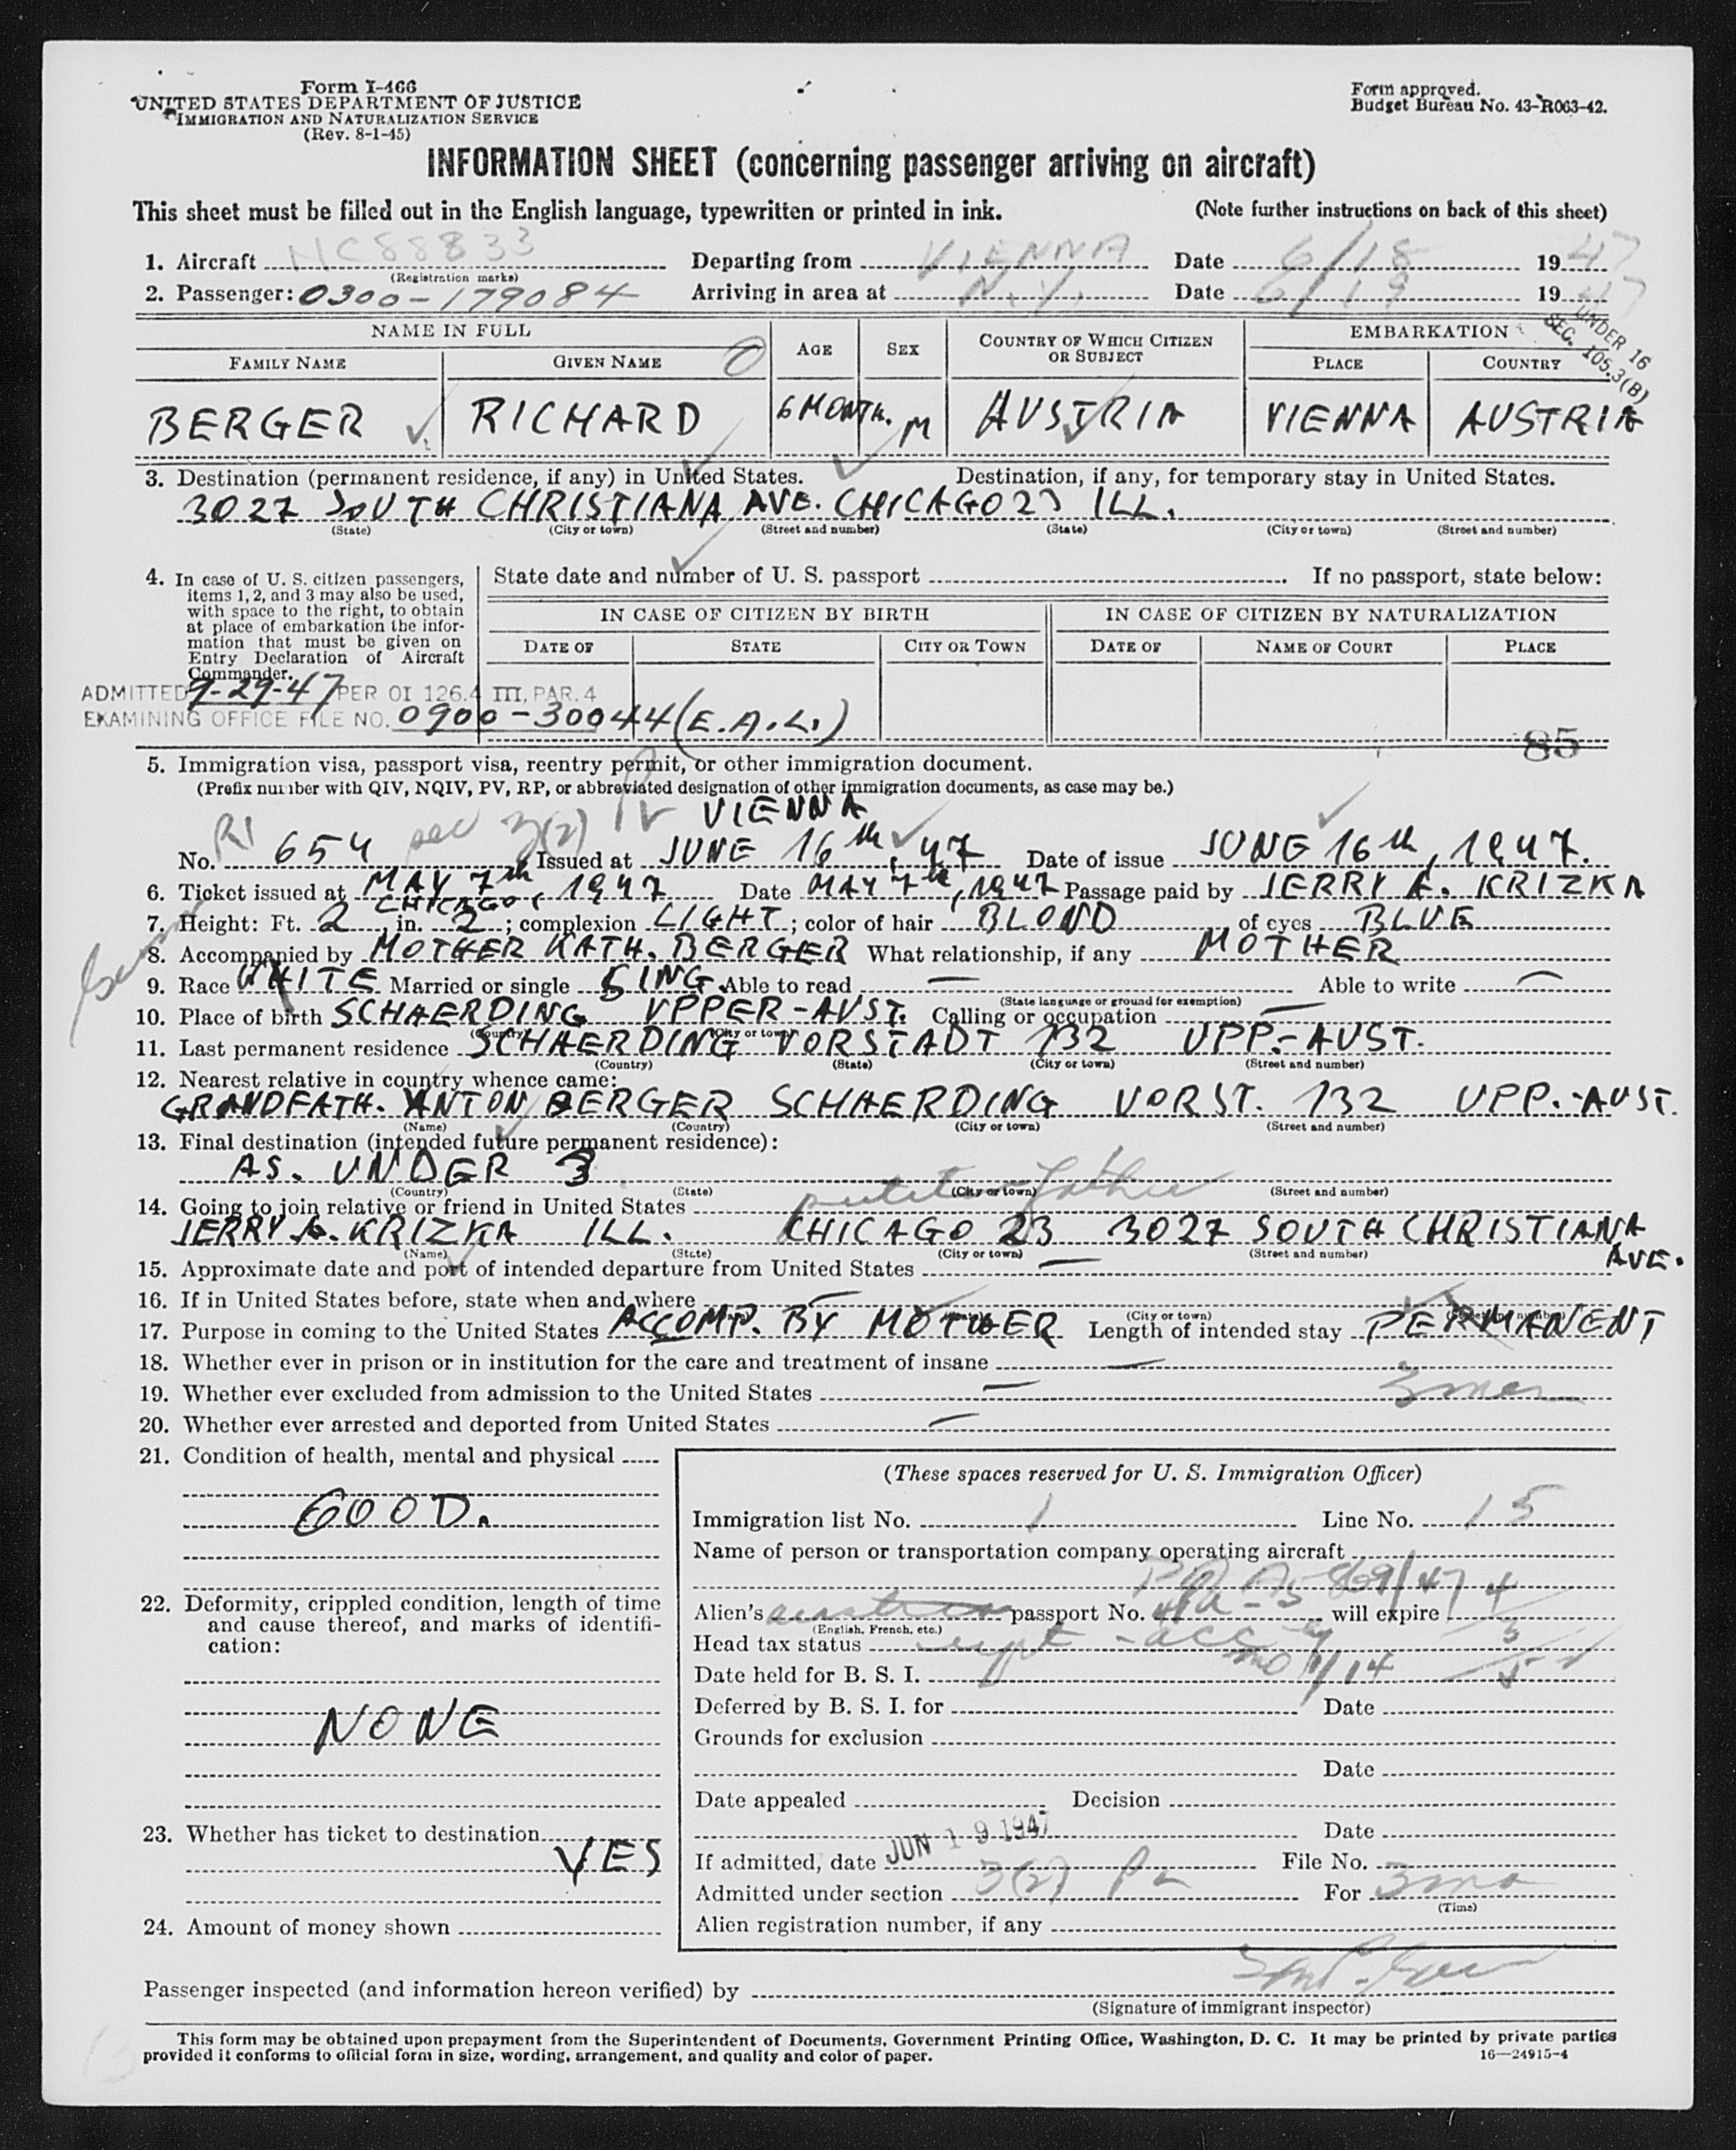 Form I-466
UNITED STATES DEPARTMENT OF JUSTICE
IMMIGRATION AND NATURALIZATION SERVICE
(Rev. 8-1-45)
Form approved.
Budget Bureau No. 43-R063-42.
INFORMATION SHEET (concerning passenger arriving on aircraft)
This sheet must be filled out in the English language, typewritten or printed in ink. (Note further instructions on back of this sheet)
1. Aircraft NC88833 Departing from VIENNA Date 6/18 1947
(Registration marks)
2. Passenger: 0300-179084 Arriving in area at N.Y. Date 6/19 1947
UNDER 16
SEC. 105.3(B)
NAME IN FULL AGE SEX COUNTRY OF WHICH CITIZEN OR SUBJECT EMBARKATION
FAMILY NAME GIVEN NAME PLACE COUNTRY
BERGER RICHARD 6 MONTH. M AUSTRIA VIENNA AUSTRIA
3. Destination (permanent residence, if any) in United States. Destination, if any, for temporary stay in United States.
3027 SOUTH CHRISTIANA AVE. CHICAGO 23 ILL.
(State) (City or town) (Street and number) (State) (City or town) (Street and number)
4. In case of U. S. citizen passengers, items 1, 2, and 3 may also be used, with space to the right, to obtain at place of embarkation the information that must be given on Entry Declaration of Aircraft Commander.
State date and number of U. S. passport If no passport, state below:
IN CASE OF CITIZEN BY BIRTH IN CASE OF CITIZEN BY NATURALIZATION
DATE OF STATE CITY OR TOWN DATE OF NAME OF COURT PLACE
ADMITTED 9-29-47 PER OI 126.4 III, PAR. 4
EXAMINING OFFICE FILE NO. 0900-30044 (E.A.L.)
85
5. Immigration visa, passport visa, reentry permit, or other immigration document.
(Prefix number with QIV, NQIV, PV, RP, or abbreviated designation of other immigration documents, as case may be.)
PV VIENNA
No. 654 sec 3(2) Issued at JUNE 16th, 47 Date of issue JUNE 16th, 1947.
6. Ticket issued at MAY 7th, 1947 Date MAY 7th, 1947 Passage paid by JERRY A. KRIZKA
CHICAGO
7. Height: Ft. 2, in. 2; complexion LIGHT; color of hair BLOND of eyes BLUE
8. Accompanied by MOTHER KATH. BERGER What relationship, if any MOTHER
9. Race WHITE Married or single SING. Able to read — Able to write —
(State language or ground for exemption)
10. Place of birth SCHAERDING UPPER-AUST. Calling or occupation —
(Country) (City or town)
11. Last permanent residence SCHAERDING VORSTADT 132 UPP.-AUST.
(Country) (State) (City or town) (Street and number)
12. Nearest relative in country whence came:
GRANDFATH. ANTON BERGER SCHAERDING VORST. 132 UPP.-AUST.
(Name) (Country) (City or town) (Street and number)
13. Final destination (intended future permanent residence):
AS. UNDER 3
(Country) (State) (City or town) (Street and number)
14. Going to join relative or friend in United States putative father
JERRY A. KRIZKA ILL. CHICAGO 23 3027 SOUTH CHRISTIANA AVE.
(Name) (State) (City or town) (Street and number)
15. Approximate date and port of intended departure from United States —
16. If in United States before, state when and where —
(City or town)
17. Purpose in coming to the United States ACCOMP. BY MOTHER Length of intended stay PERMANENT
18. Whether ever in prison or in institution for the care and treatment of insane —
19. Whether ever excluded from admission to the United States — 3 mos
20. Whether ever arrested and deported from United States —
21. Condition of health, mental and physical
GOOD.
22. Deformity, crippled condition, length of time and cause thereof, and marks of identification:
NONE
23. Whether has ticket to destination
YES
24. Amount of money shown
(These spaces reserved for U. S. Immigration Officer)
Immigration list No. 1 Line No. 15
Name of person or transportation company operating aircraft
Alien's passport No. will expire
(English, French, etc.)
Head tax status
Date held for B. S. I.
Deferred by B. S. I. for Date
Grounds for exclusion
Date
Date appealed Decision
Date
If admitted, date JUN 19 1947 File No.
Admitted under section 3(2) For 3 mo
(Time)
Alien registration number, if any
Passenger inspected (and information hereon verified) by
(Signature of immigrant inspector)
This form may be obtained upon prepayment from the Superintendent of Documents, Government Printing Office, Washington, D. C. It may be printed by private parties
provided it conforms to official form in size, wording, arrangement, and quality and color of paper. 16—24915-4